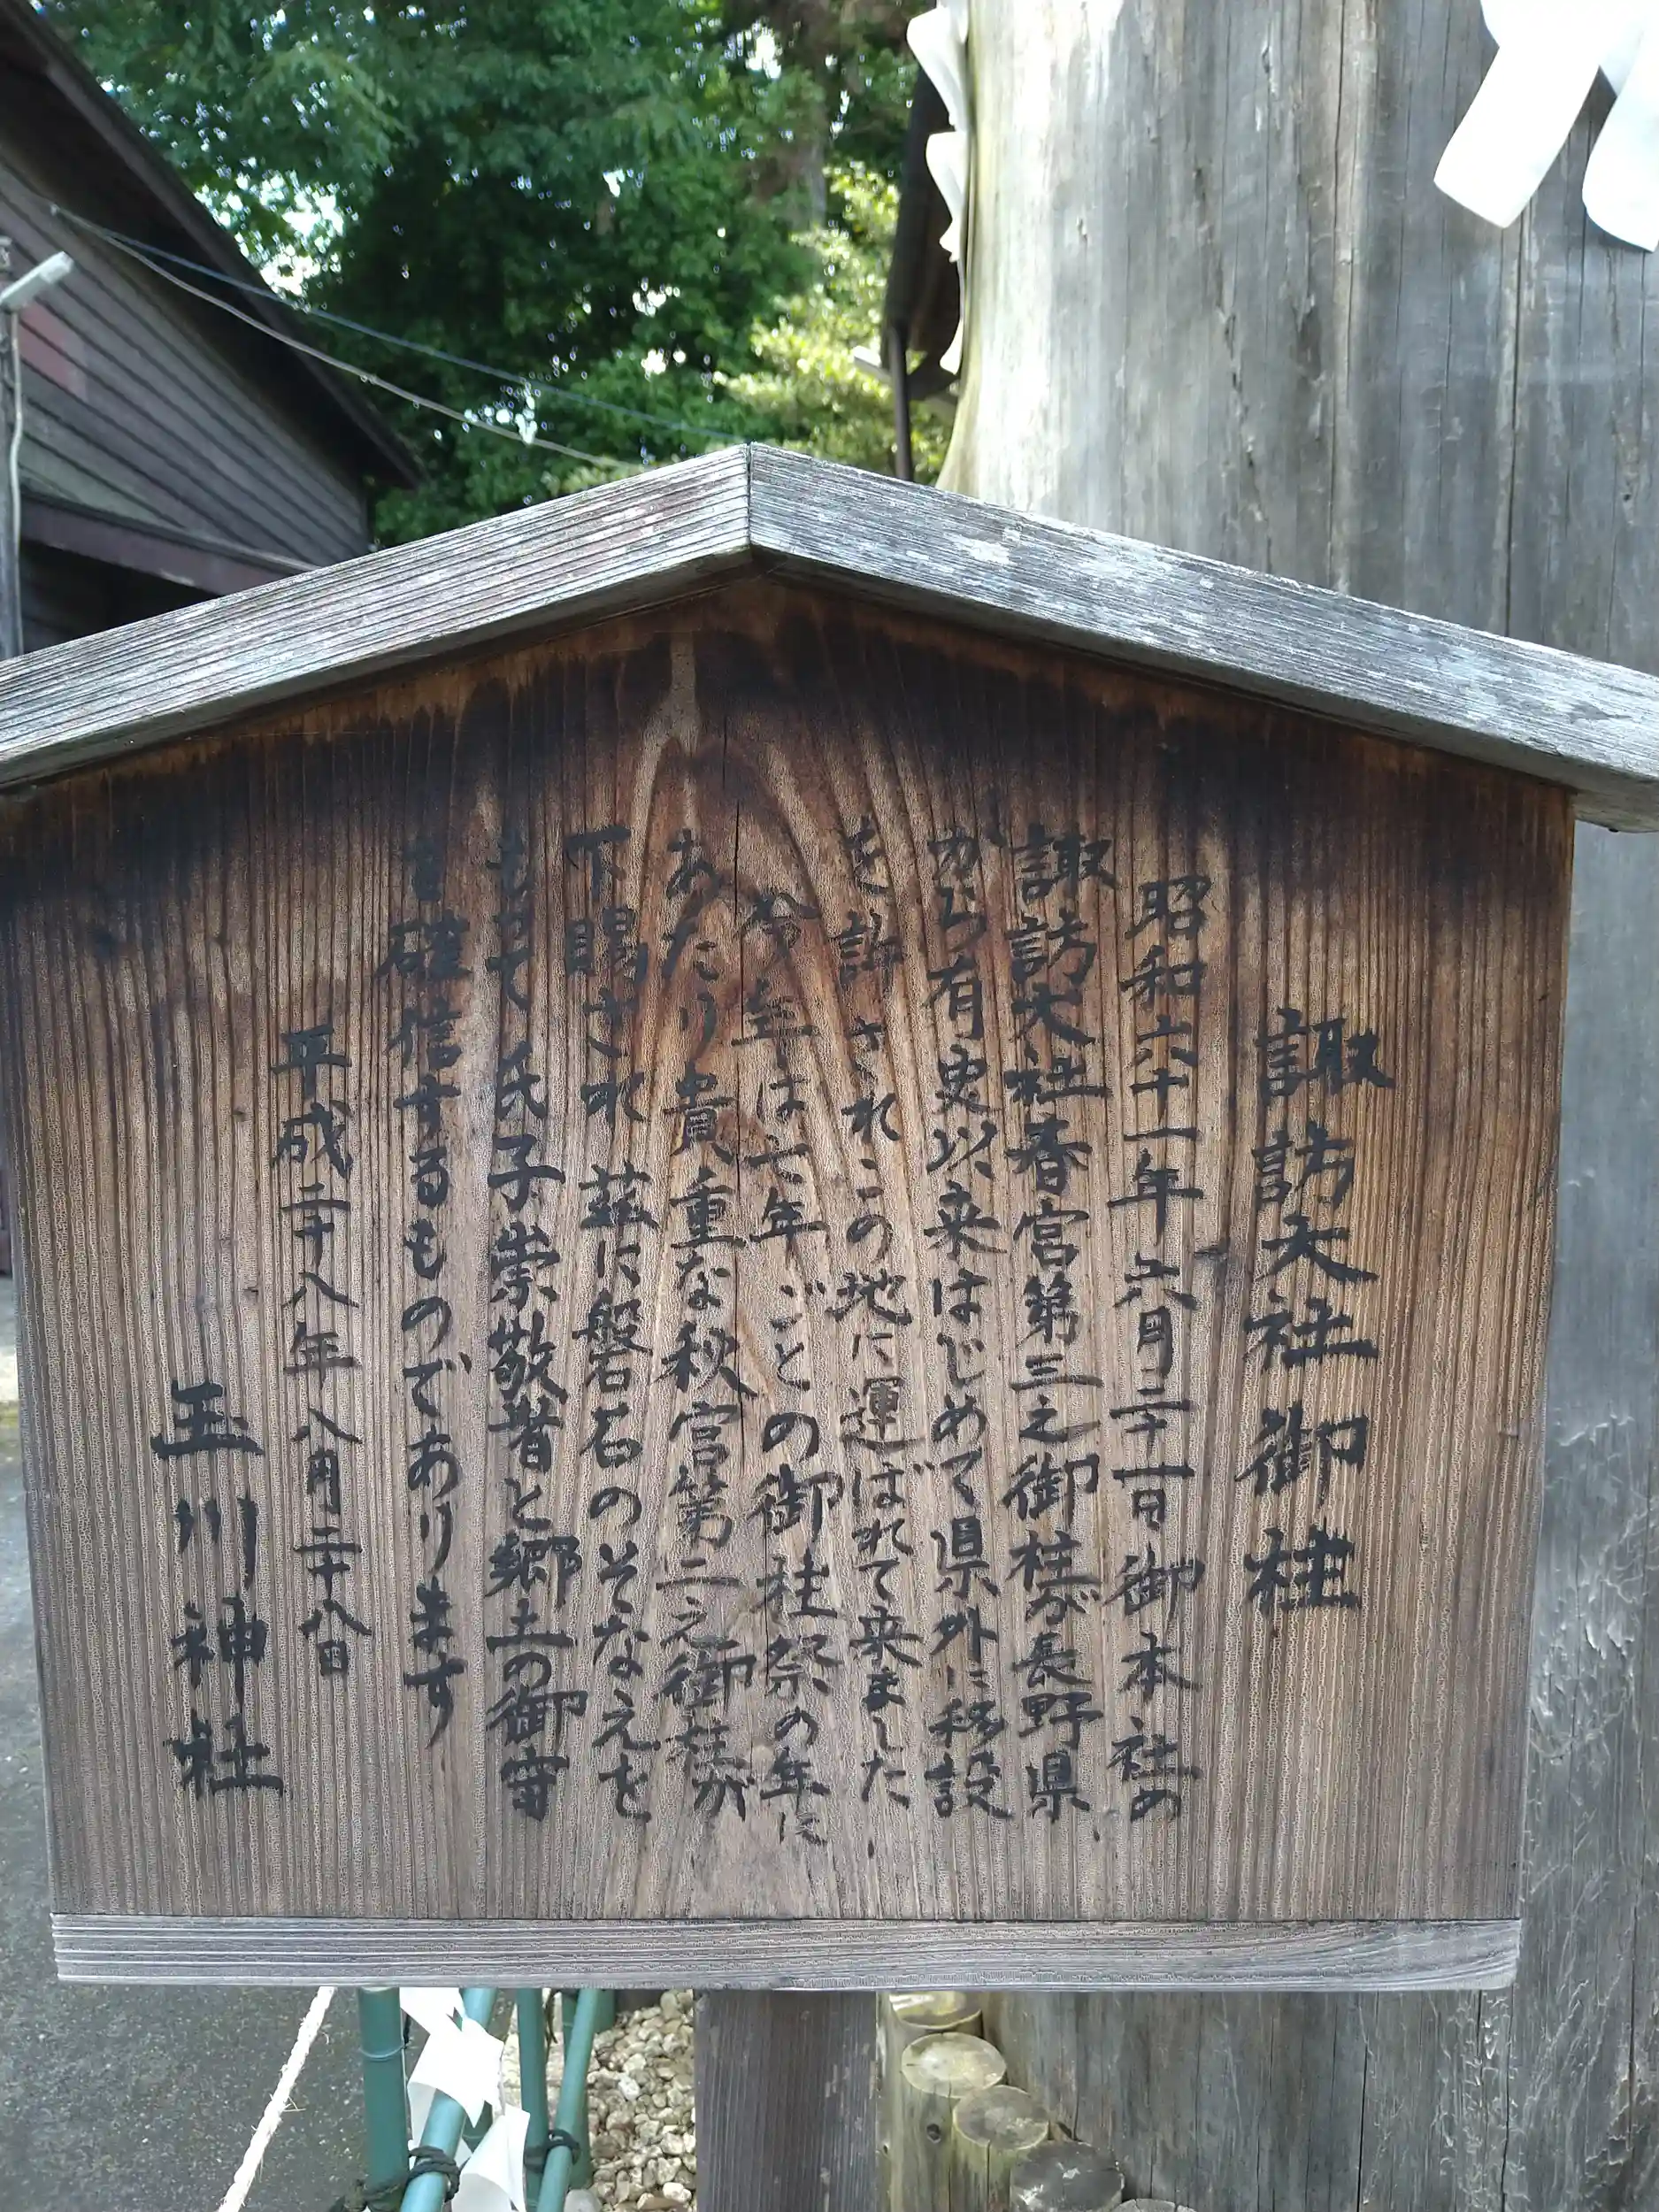 諏訪大社御柱
昭和六十一年六月二十一日御本社の
諏訪大社春宮第三之御柱が長野県
から有史以来はじめて県外に移設
を許されこの地に運ばれて来ました
今年は七年ごとの御柱祭の年に
あたり貴重な秋宮第二之御柱が
下賜され茲に磐石のそなえを
もって氏子崇敬者と郷土の御守
を確信するものであります
平成二十八年八月二十八日
玉川神社